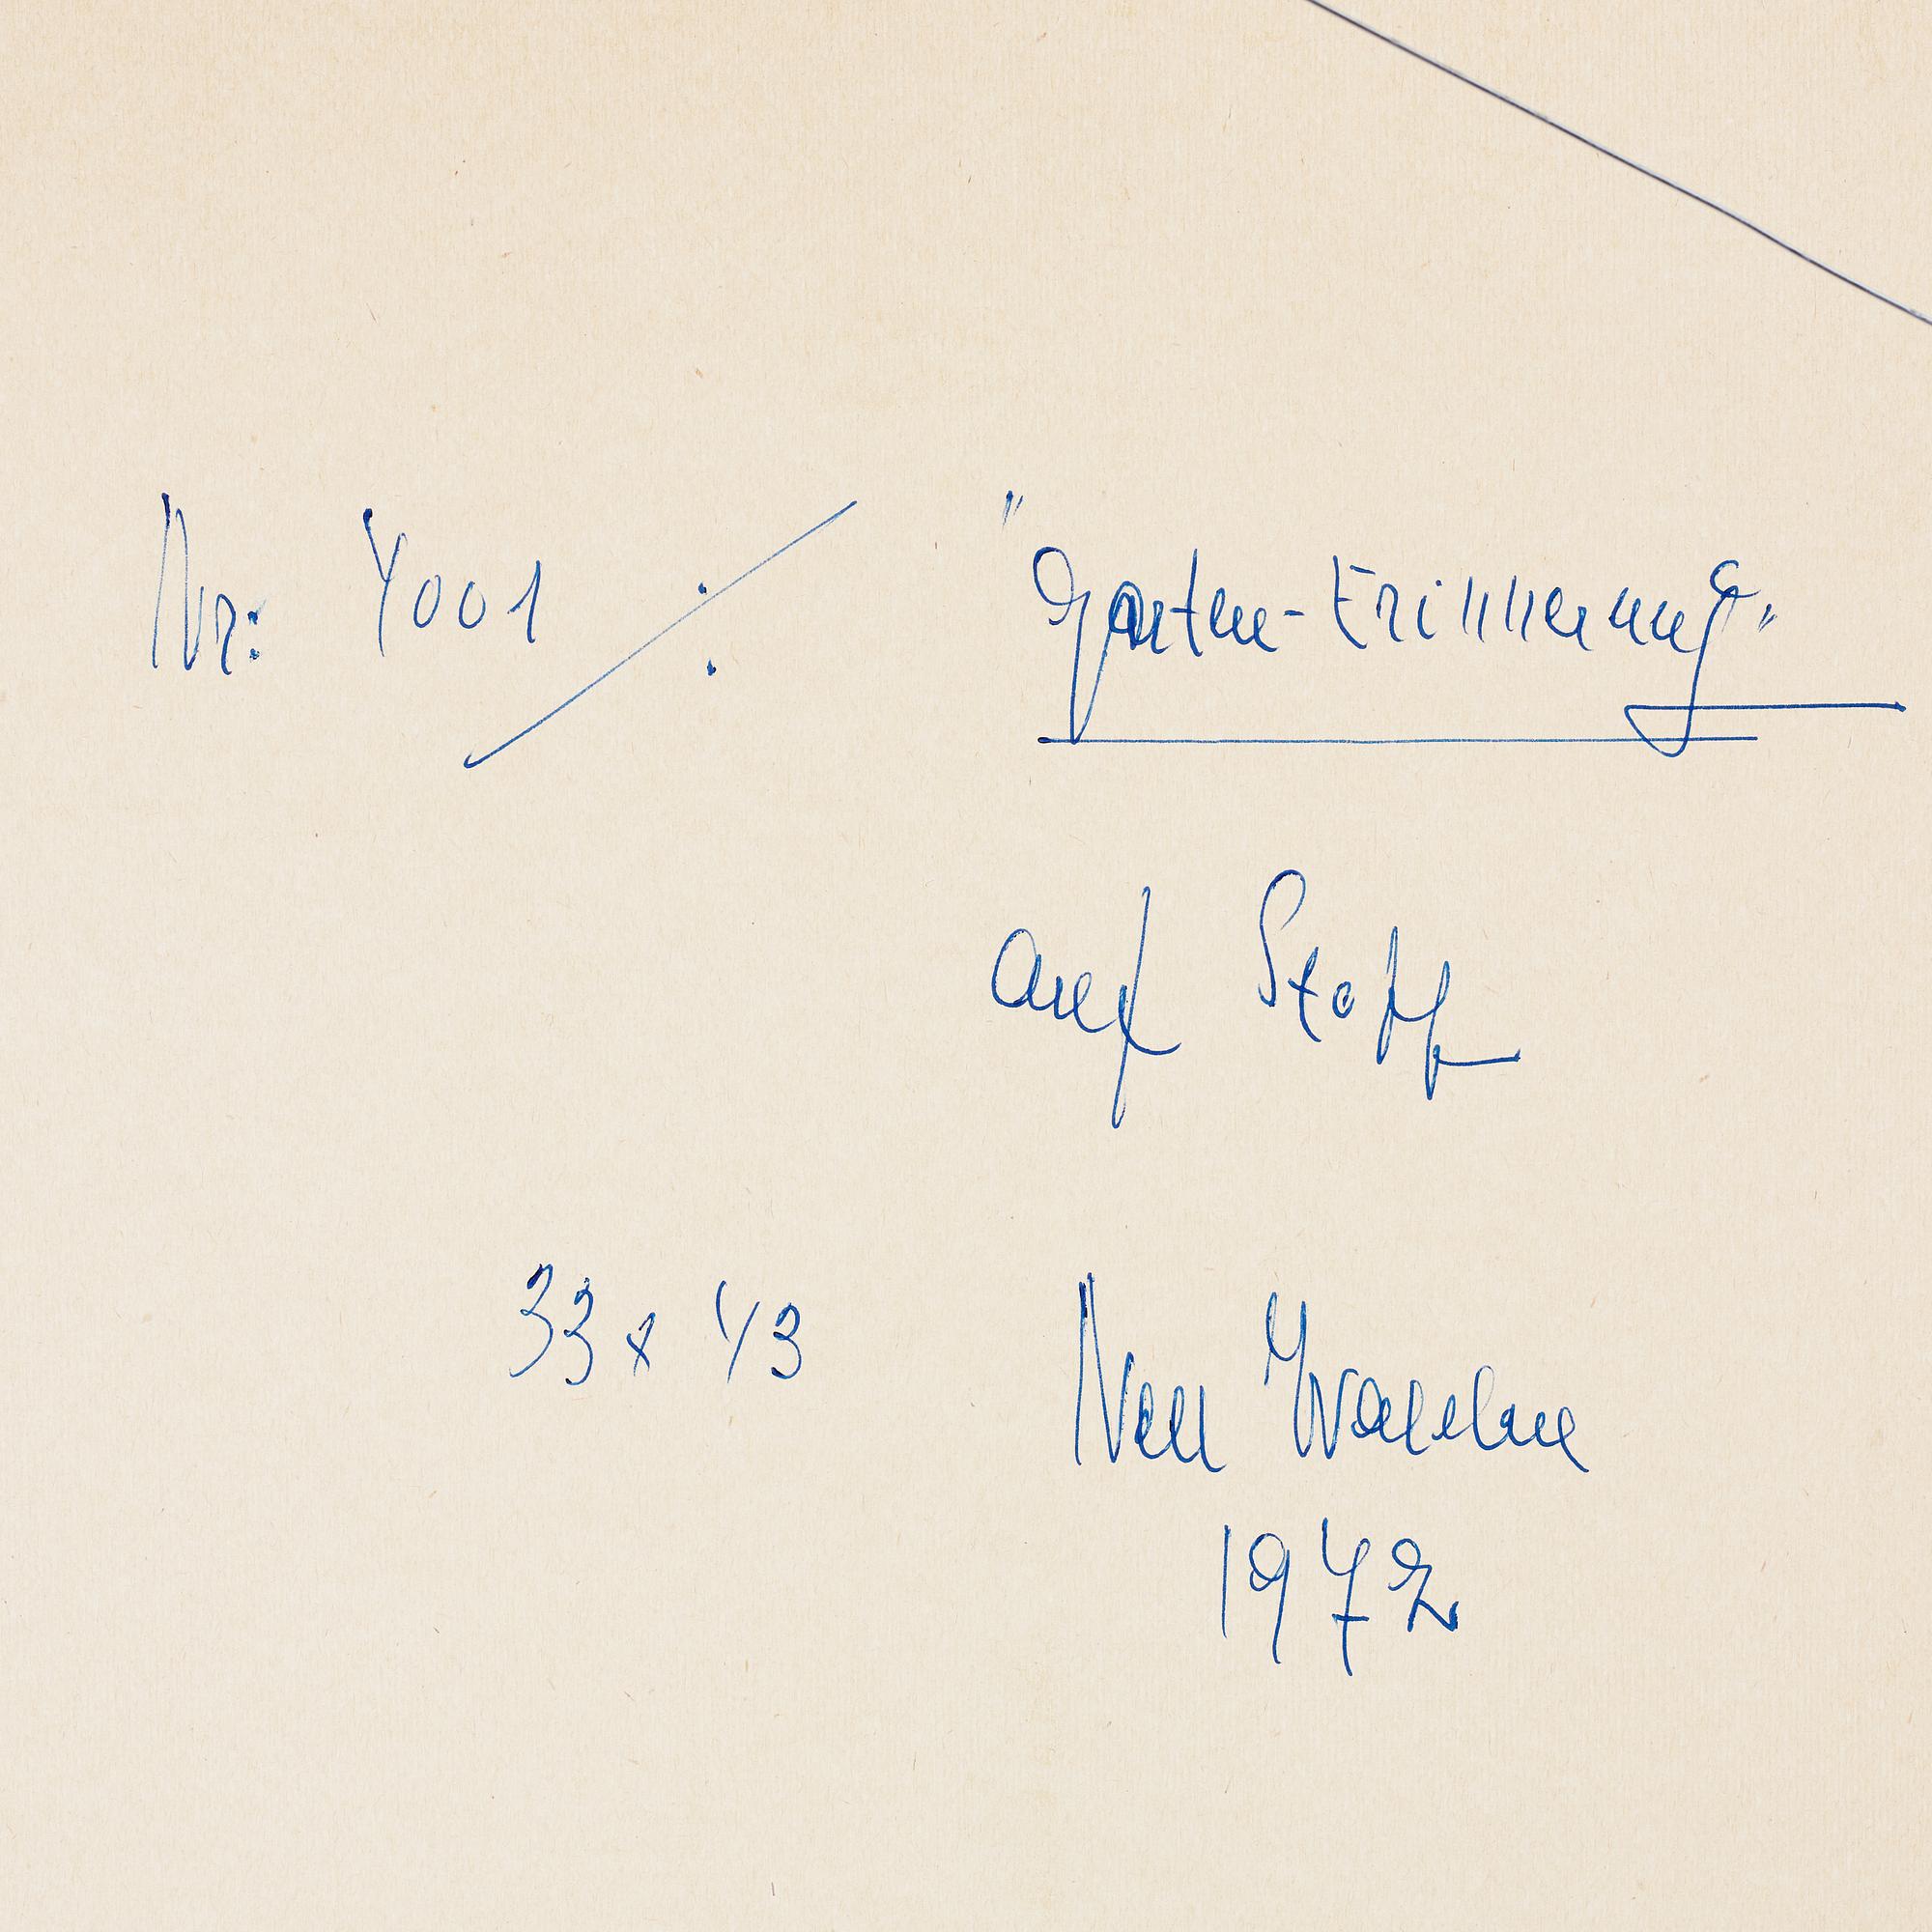 Nr: 4001 ⁒ "Garten-Erinnerung"
auf Stoff
33 x 43 Nell Walden
1972